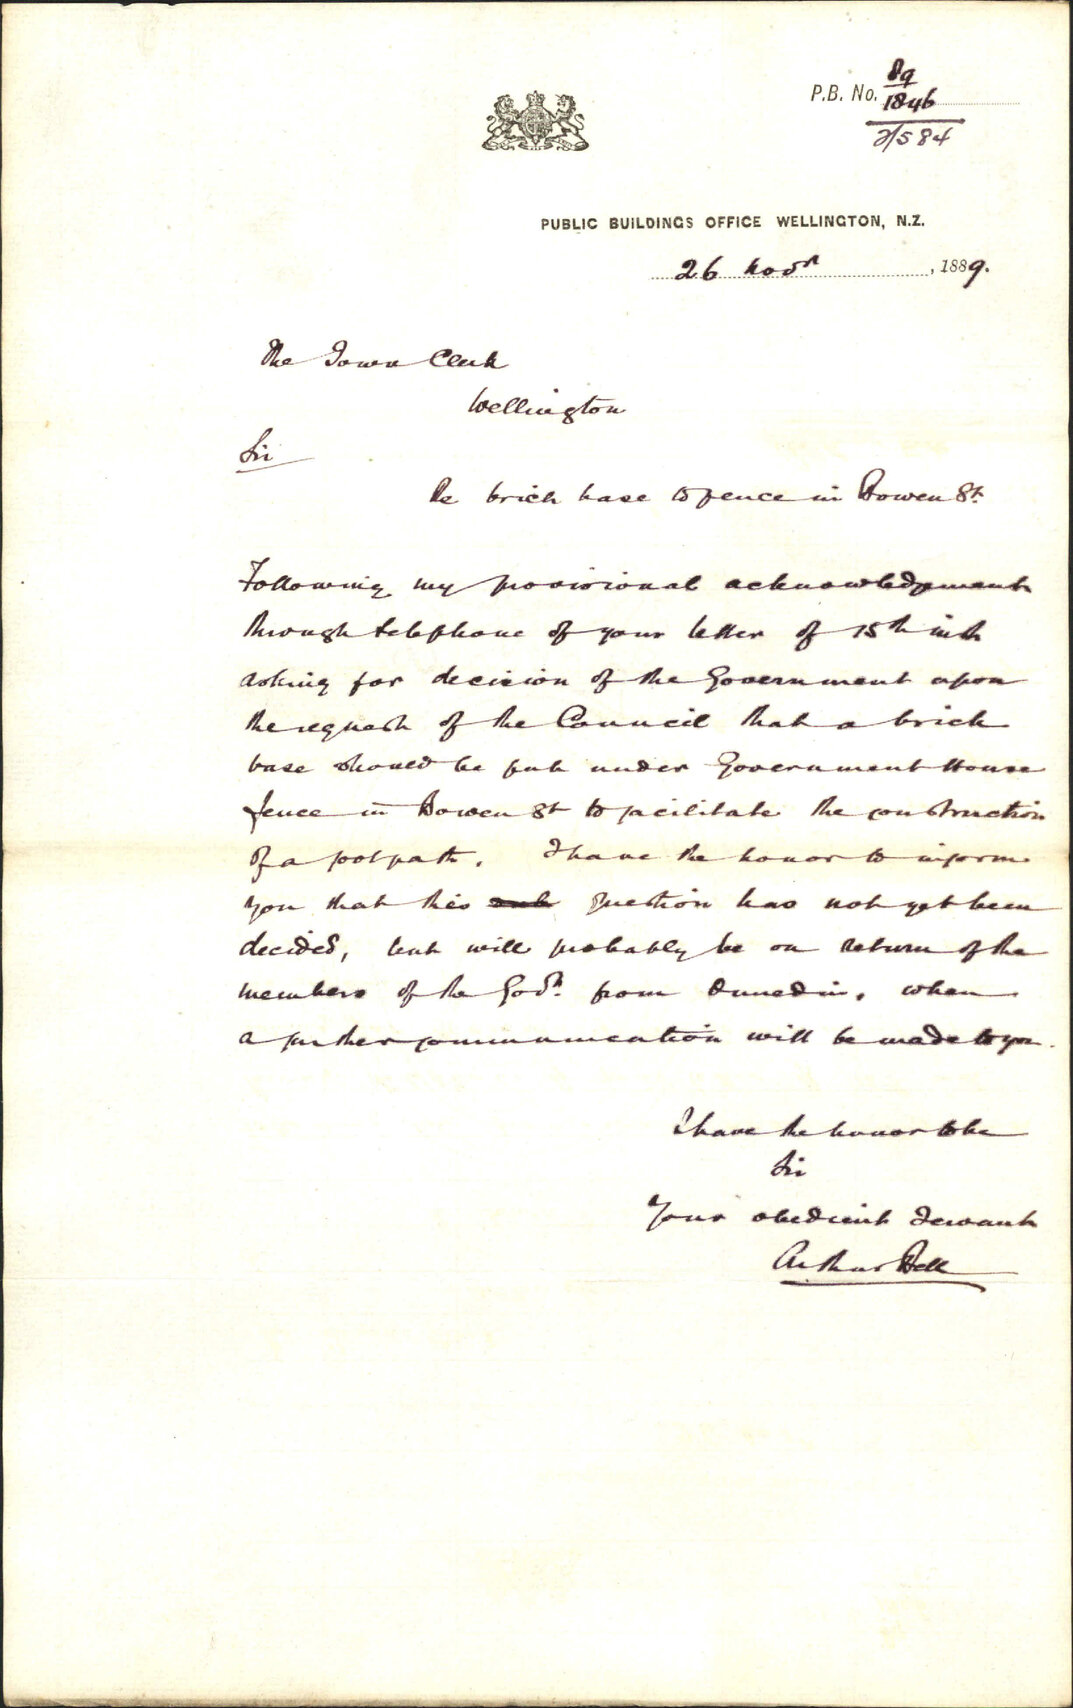 P.B. No. 89
1846
2/584
PUBLIC BUILDINGS OFFICE WELLINGTON, N.Z.
26 Novr, 1889.
The Town Clerk
Wellington
Sir
Re brick base to fence in Bowen St.
Following my provisional acknowledgment
through telephone of your letter of 15th inst
asking for decision of the Government upon
the request of the Council that a brick
base should be put under Government House
fence in Bowen St to facilitate the construction
of a footpath. I have the honor to inform
you that this question has not yet been
decided, but will probably be on return of the
members of the Govt. from Dunedin, when
a further communication will be made to you.
I have the honor to be
Sir
Your obedient Servant
Arthur Bell